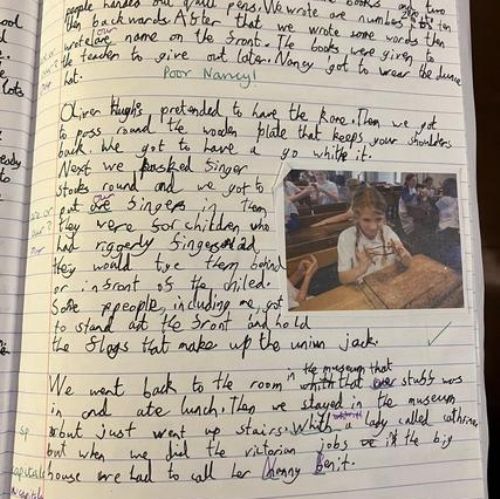 people handed out quill pens. We wrote are numbers to ten
then backwards After that we wrote some words then
wrote are name on the front. The books were given to
the teacher to give out later. Nancy got to wear the dunce
hat. Poor Nancy!
Oliver Hughs pretended to have the kane. Then we got
to pass round the wooden plate that keeps your shoulders
back. We got to have a go with it.
Next we passed finger
stocks round and we got to
put are fingers in them
they were for children who
had riggerly fingers and
they would tye them behind
or infront of the chiled.
Some people, including me, got
to stand at the front and hold
the flags that make up the union jack.
We went back to the room in the museum that
that our stubb was
in and ate lunch. Then we stayed in the museum
but just went up stairs. With a lady called cathrine
but when we did the victorian jobs in the big
house we had to call her Nanny Benit.
sp
capitals